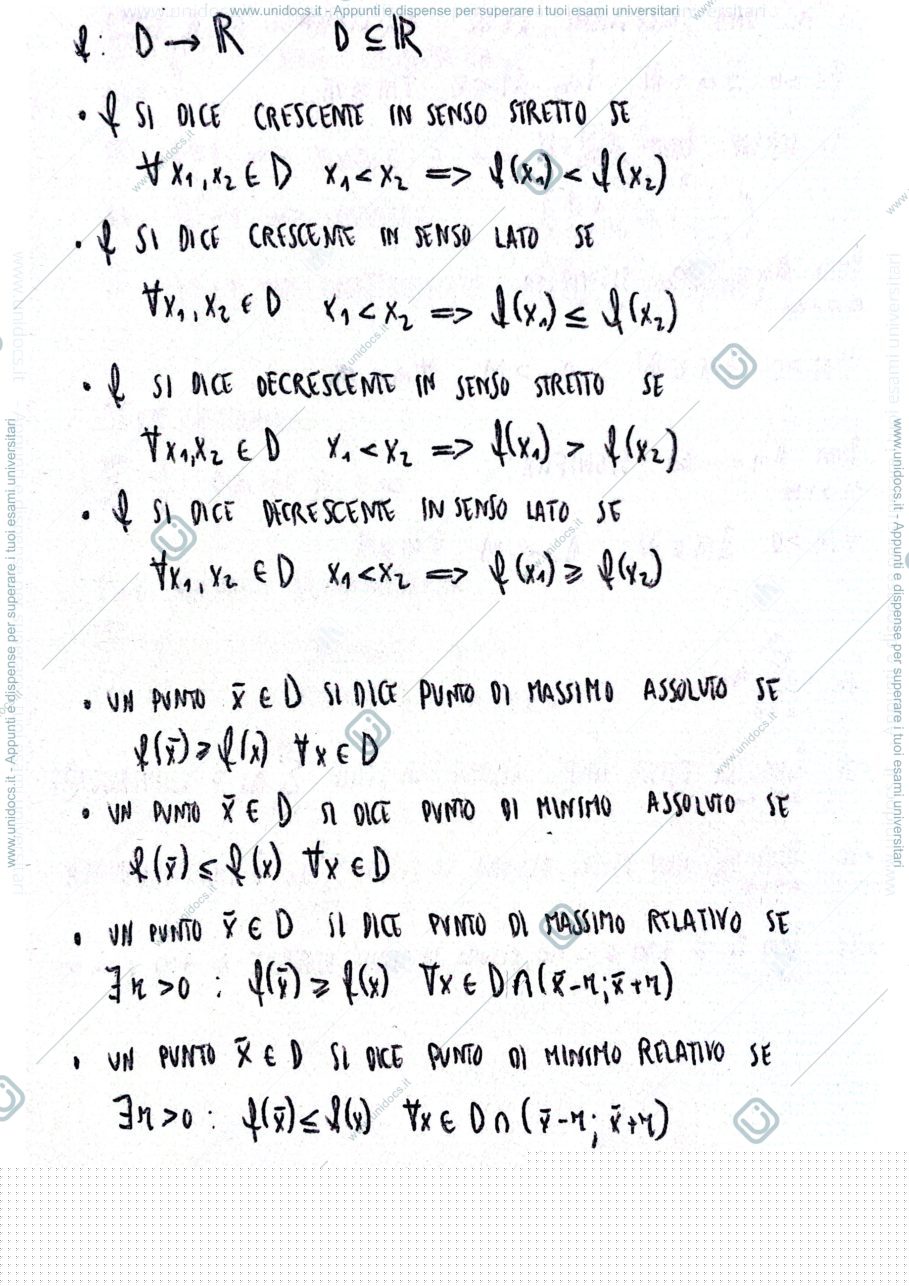 www.unidocs.it - Appunti e dispense per superare i tuoi esami universitari
f: D → ℝ D ⊆ ℝ
• f SI DICE CRESCENTE IN SENSO STRETTO SE
∀ x₁, x₂ ∈ D x₁ < x₂ => f(x₁) < f(x₂)
• f SI DICE CRESCENTE IN SENSO LATO SE
∀x₁, x₂ ∈ D x₁ < x₂ => f(x₁) ≤ f(x₂)
• f SI DICE DECRESCENTE IN SENSO STRETTO SE
∀x₁,x₂ ∈ D x₁ < x₂ => f(x₁) > f(x₂)
• f SI DICE DECRESCENTE IN SENSO LATO SE
∀x₁, x₂ ∈ D x₁ < x₂ => f(x₁) ≥ f(x₂)
• UN PUNTO x̄ ∈ D SI DICE PUNTO DI MASSIMO ASSOLUTO SE
f(x̄) ≥ f(x) ∀x ∈ D
• UN PUNTO x̄ ∈ D SI DICE PUNTO DI MINIMO ASSOLUTO SE
f(x̄) ≤ f(x) ∀x ∈ D
• UN PUNTO x̄ ∈ D SI DICE PUNTO DI MASSIMO RELATIVO SE
∃r > 0 : f(x̄) ≥ f(x) ∀x ∈ D ∩ (x̄-r; x̄+r)
• UN PUNTO x̄ ∈ D SI DICE PUNTO DI MINIMO RELATIVO SE
∃r > 0 : f(x̄) ≤ f(x) ∀x ∈ D ∩ (x̄-r; x̄+r)
www.unidocs.it - Appunti e dispense per superare i tuoi esami universitari
www.unidocs.it - Appunti e dispense per superare i tuoi esami universitari